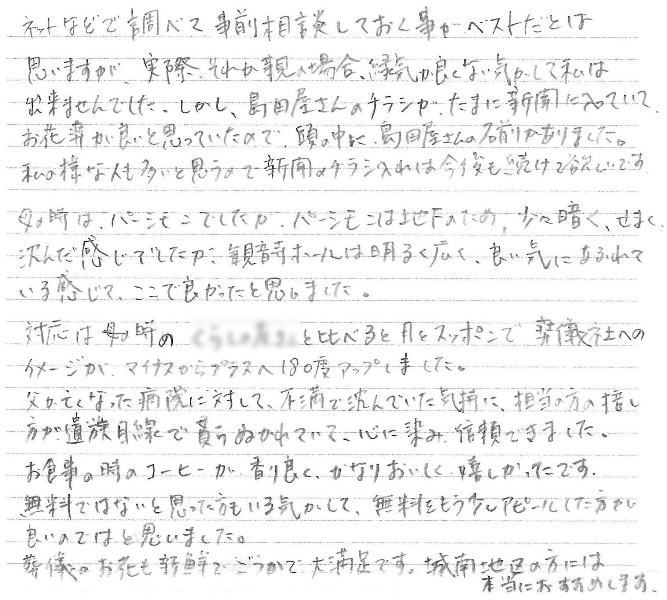 ネットなどで調べて事前相談しておく事がベストだとは
思いますが、実際、それが親の場合、縁気が良くない気がして私は
出来ませんでした。しかし、島田屋さんのチラシが、たまに新聞に入っていて、
お花葬が良いと思っていたので、頭の中に、島田屋さんの名前がありました。
私の様な人も多いと思うので新聞のチラシ入れは今後も続けて欲しいです。
母の時は、パーシモンでしたが、パーシモンは地下のため、少々暗く、せまく、
沈んだ感じでしたが、観音寺ホールは明るく広く、良い気にあふれて
いる感じで、ここで良かったと思いました。
対応は母の時の と比べると月とスッポンで 葬儀社への
イメージが、マイナスからプラスへ180度アップしました。
父が亡くなった病院に対して、不満で沈んでいた気持に、担当の方の接し
方が遺族目線で貫きぬかれていて、心に染み、信頼できました。
お食事の時のコーヒーが、香り良く、かなりおいしく、嬉しかったです。
無料ではないと思った方もいる気がして、無料をもう少しアピールした方が
良いのではと思いました。
葬儀のお花も新鮮でごうかで大満足です。城南地区の方には
本当におすすめします。